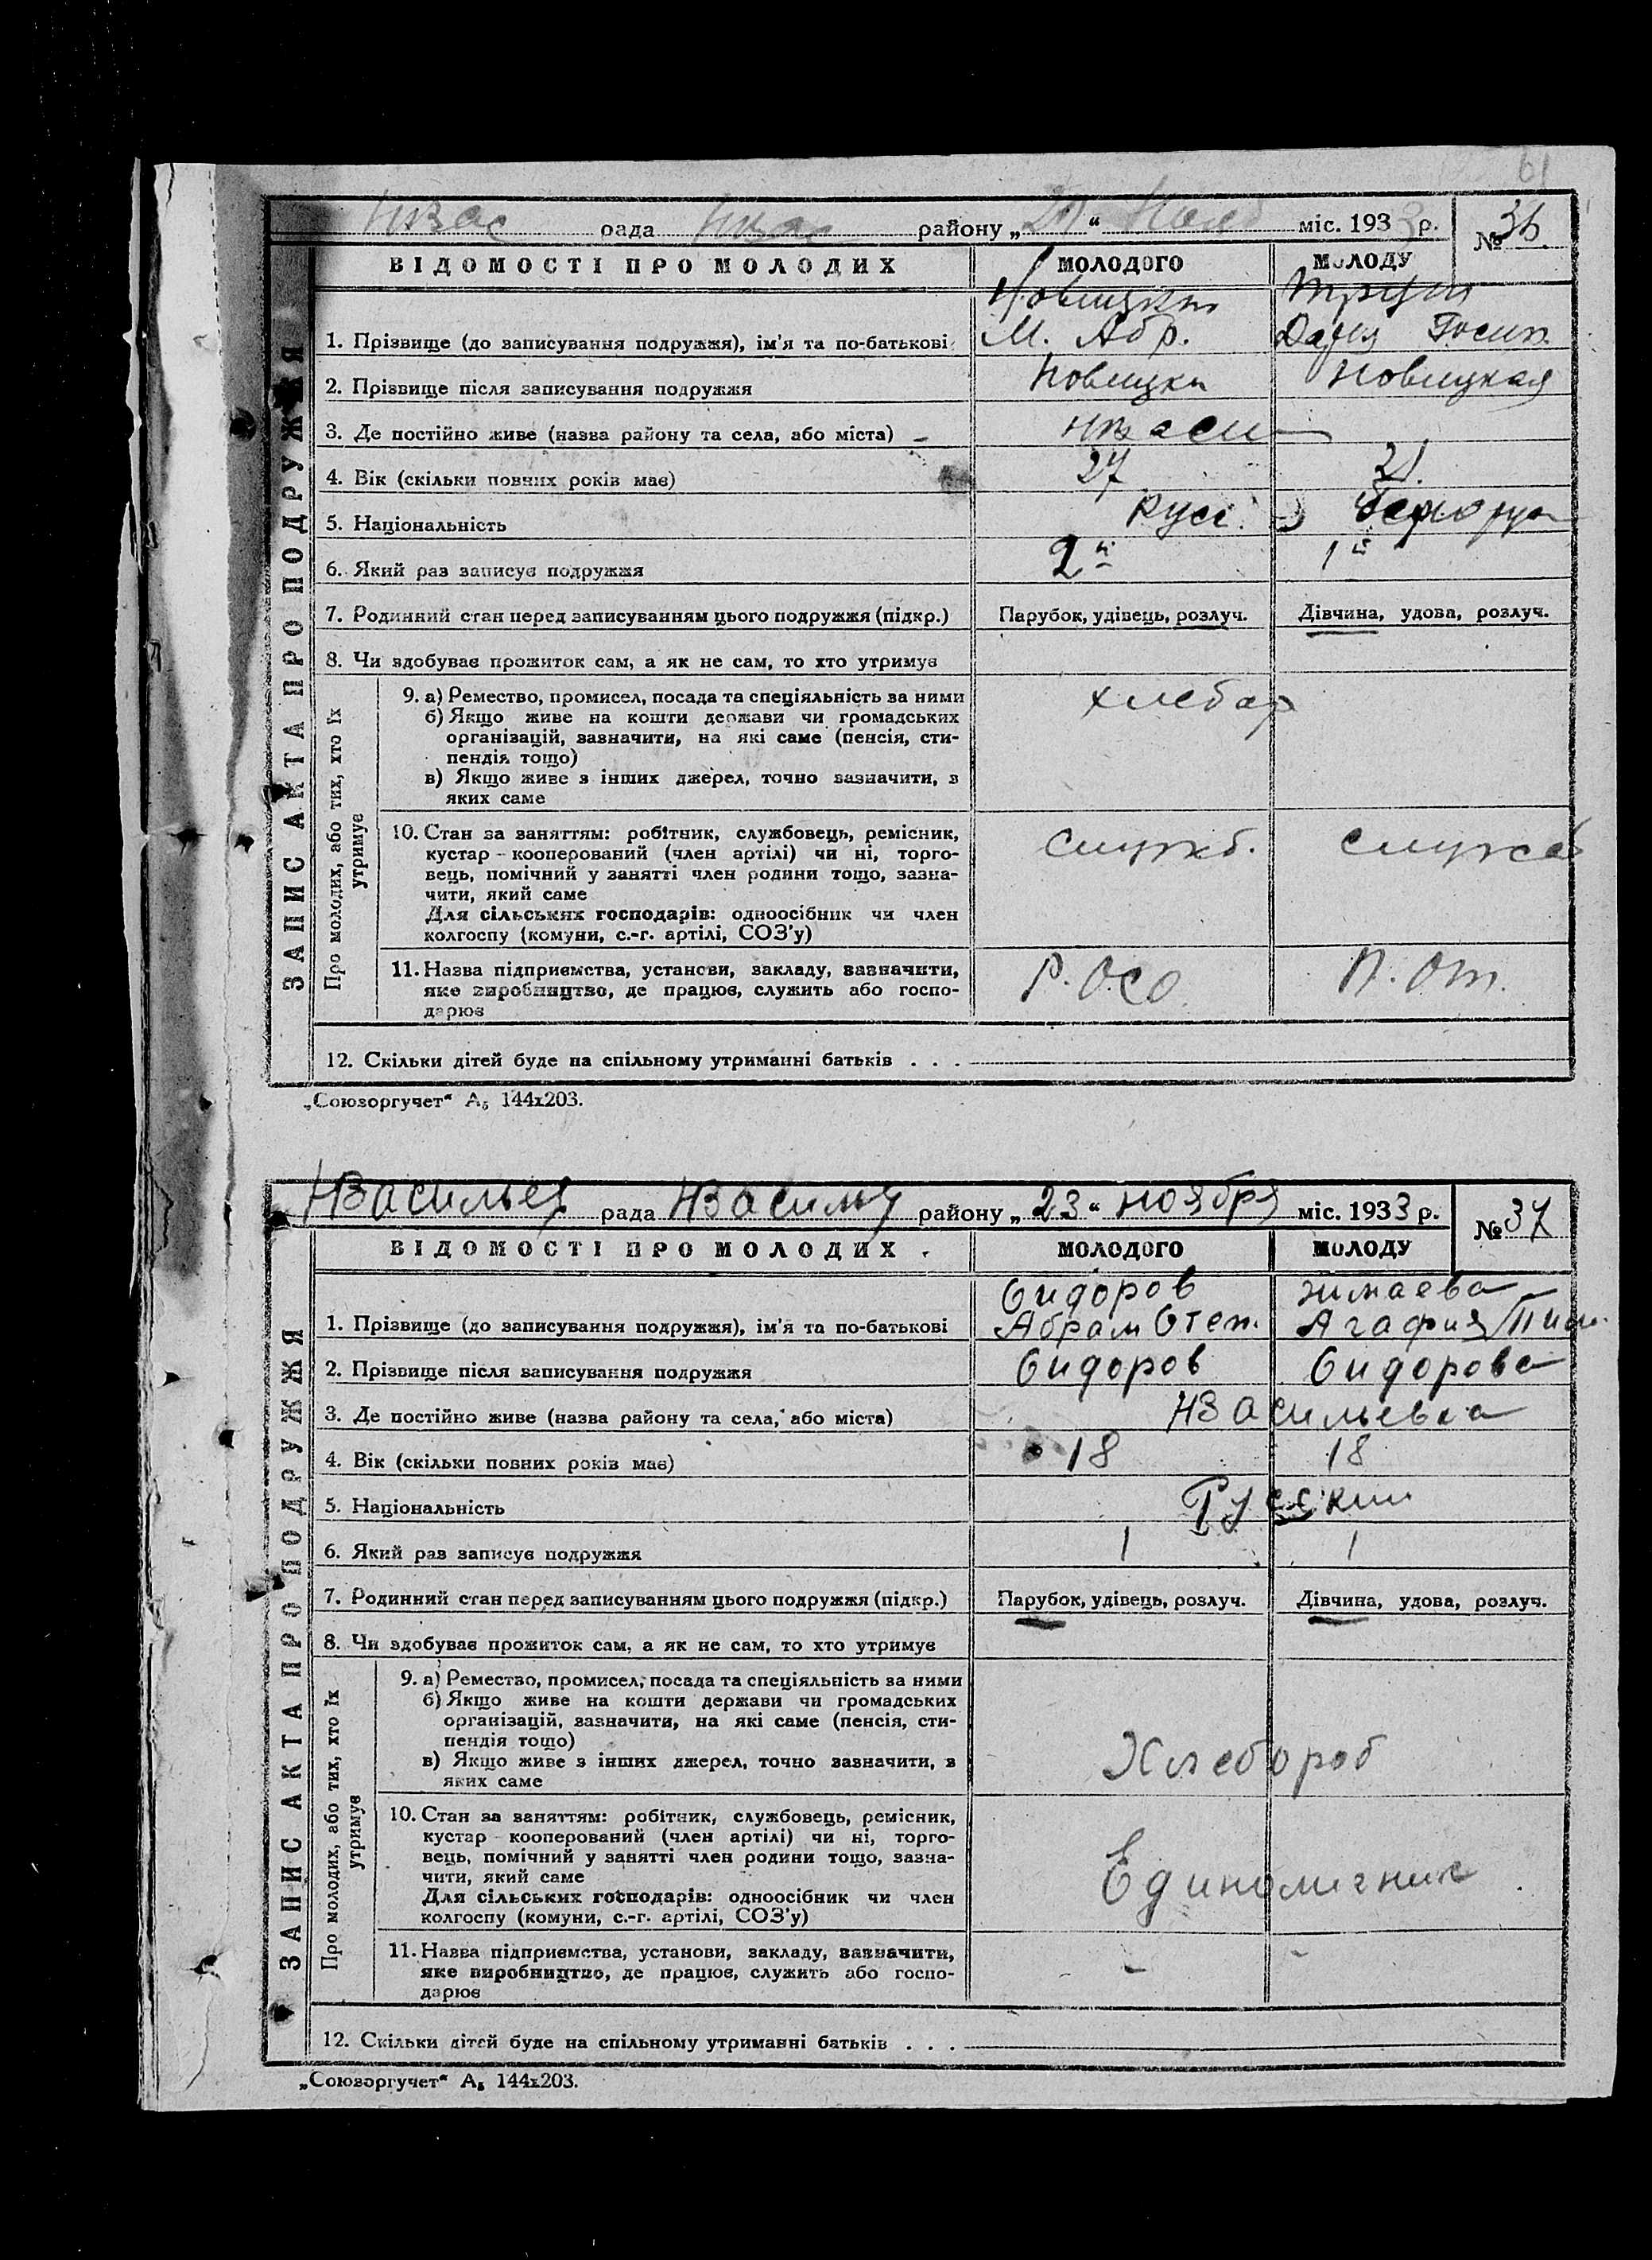 61
Нвас рада Нвас району „21“ Нояб міс. 1933 р. № 36.
ВІДОМОСТІ ПРО МОЛОДИХ МОЛОДОГО МОЛОДУ
Новицкий
1. Прізвище (до записування подружжя), ім'я та по-батькові М. Абр. Дария Иосип.
2. Прізвище після записування подружжя Новицки Новицкая
3. Де постійно живе (назва району та села, або міста)
4. Вік (скільки повних років має) 27 21.
5. Національність Русс.
6. Який раз записує подружжя 2й 1й
7. Родинний стан перед записуванням цього подружжя (підкр.) Парубок, удівець, розлуч. Дівчина, удова, розлуч.
8. Чи здобуває прожиток сам, а як не сам, то хто утримує
9. а) Ремество, промисел, посада та спеціяльність за ними хлебар
б) Якщо живе на кошти держави чи громадських
організацій, зазначити, на які саме (пенсія, сти-
пендія тощо)
в) Якщо живе з інших джерел, точно зазначити, з
яких саме
10. Стан за заняттям: робітник, службовець, ремісник, служб. служб
кустар-кооперований (член артілі) чи ні, торго-
вець, помічний у занятті член родини тощо, зазна-
чити, який саме
Для сільських господарів: одноосібник чи член
колгоспу (комуни, с.-г. артілі, СОЗ'у)
11. Назва підприємства, установи, закладу, зазначити, Р. Осо П. От.
яке виробництво, де працює, служить або госпо-
дарює
12. Скільки дітей буде на спільному утриманні батьків . . .
ЗАПИС АКТА ПРО ПОДРУЖЖЯ
Про молодих, або тих, хто їх
утримує
„Союзоргучет“ А5 144х203.
НВасильев рада НВасильу району „23“ ноября міс. 1933 р. № 37
ВІДОМОСТІ ПРО МОЛОДИХ МОЛОДОГО МОЛОДУ
Сидоров Зимаева
1. Прізвище (до записування подружжя), ім'я та по-батькові Абрам Степ. Агафия Тим.
2. Прізвище після записування подружжя Сидоров Сидорова
3. Де постійно живе (назва району та села, або міста) НВасильевка
4. Вік (скільки повних років має) 18 18
5. Національність Русский
6. Який раз записує подружжя 1 1
7. Родинний стан перед записуванням цього подружжя (підкр.) Парубок, удівець, розлуч. Дівчина, удова, розлуч.
8. Чи здобуває прожиток сам, а як не сам, то хто утримує
9. а) Ремество, промисел, посада та спеціяльність за ними
б) Якщо живе на кошти держави чи громадських
організацій, зазначити, на які саме (пенсія, сти-
пендія тощо) Хлебороб
в) Якщо живе з інших джерел, точно зазначити, з
яких саме
10. Стан за заняттям: робітник, службовець, ремісник,
кустар-кооперований (член артілі) чи ні, торго-
вець, помічний у занятті член родини тощо, зазна-
чити, який саме Единоличник
Для сільських господарів: одноосібник чи член
колгоспу (комуни, с.-г. артілі, СОЗ'у)
11. Назва підприємства, установи, закладу, зазначити, - -
яке виробництво, де працює, служить або госпо-
дарює
12. Скільки дітей буде на спільному утриманні батьків . . .
ЗАПИС АКТА ПРО ПОДРУЖЖЯ
Про молодих, або тих, хто їх
утримує
„Союзоргучет“ А5 144х203.